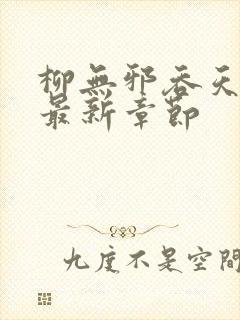 柳無邪吞天
最新章節
九度不是空間